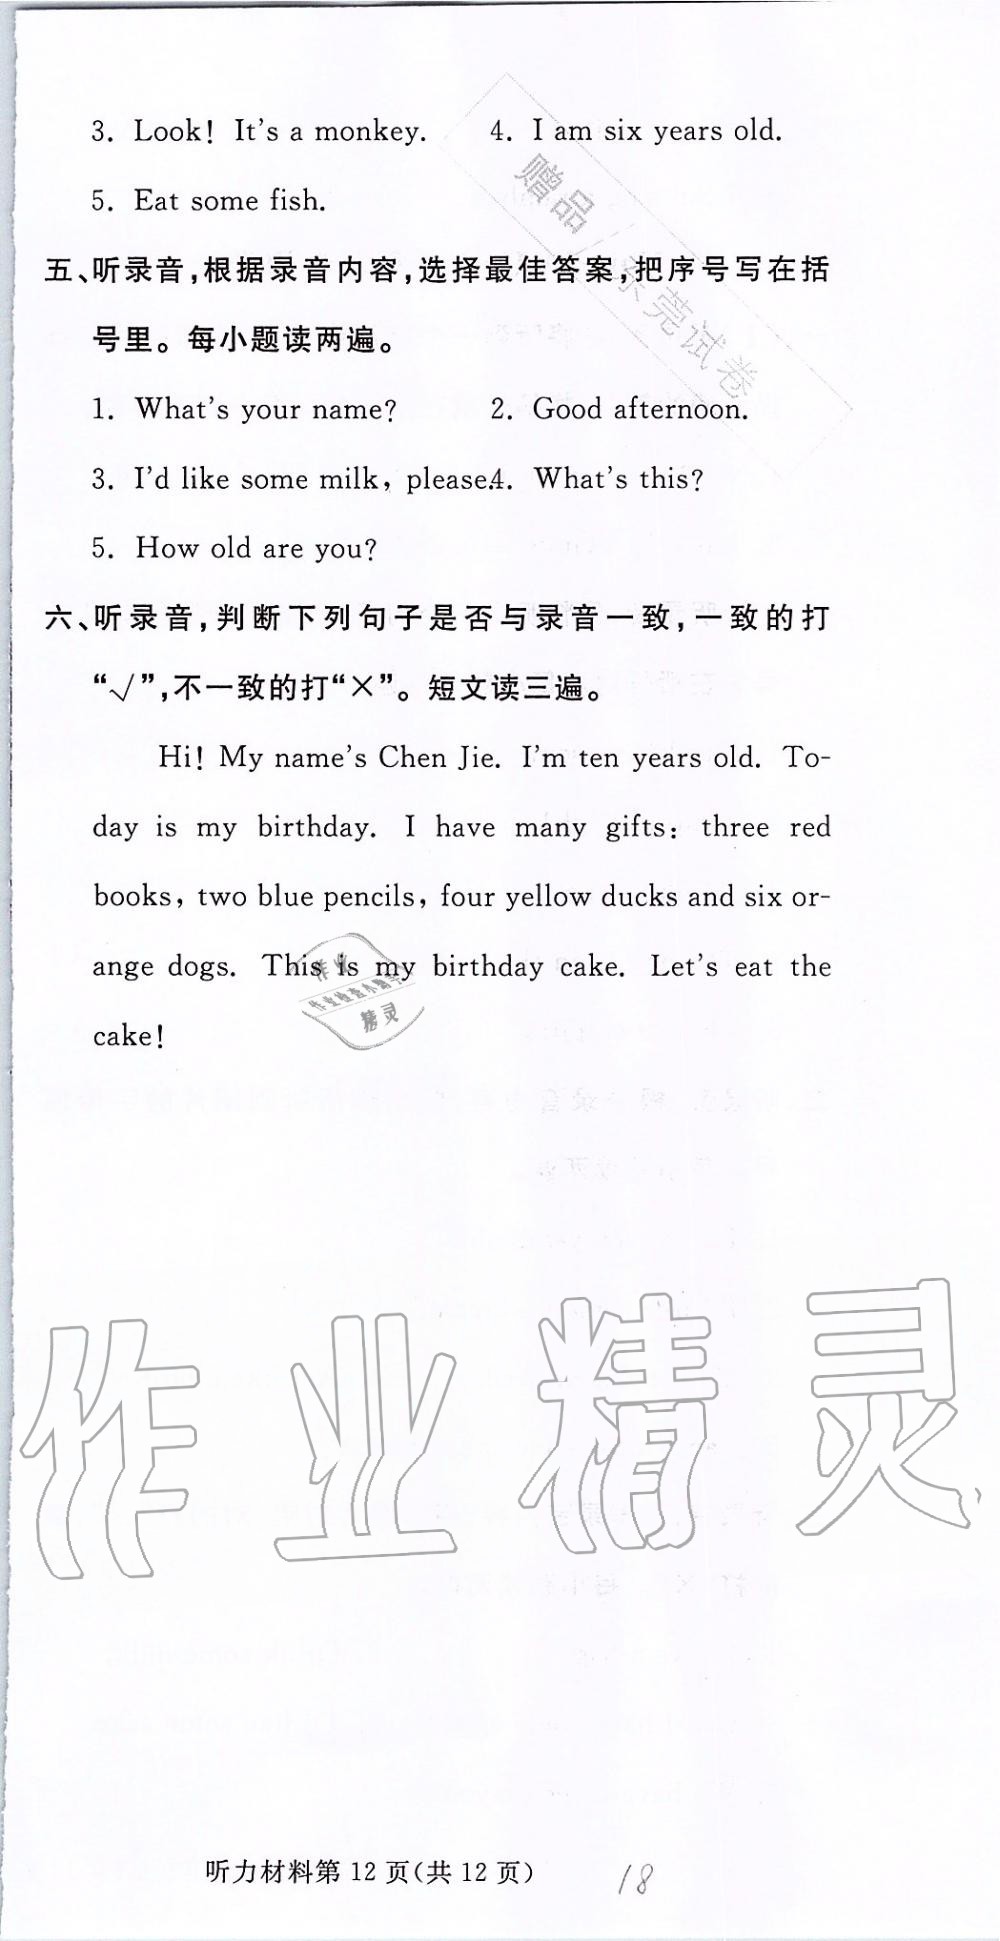 3. Look! It's a monkey. 4. I am six years old.
5. Eat some fish.
五、听录音,根据录音内容,选择最佳答案,把序号写在括
号里。每小题读两遍。
1. What's your name? 2. Good afternoon.
3. I'd like some milk, please. 4. What's this?
5. How old are you?
六、听录音,判断下列句子是否与录音一致,一致的打
“√”,不一致的打“×”。短文读三遍。
Hi! My name's Chen Jie. I'm ten years old. To-
day is my birthday. I have many gifts: three red
books, two blue pencils, four yellow ducks and six or-
ange dogs. This is my birthday cake. Let's eat the
cake!
赠品
东莞试卷
作业
作业检查小帮手
精灵
作业精灵
听力材料第12页(共12页)
18